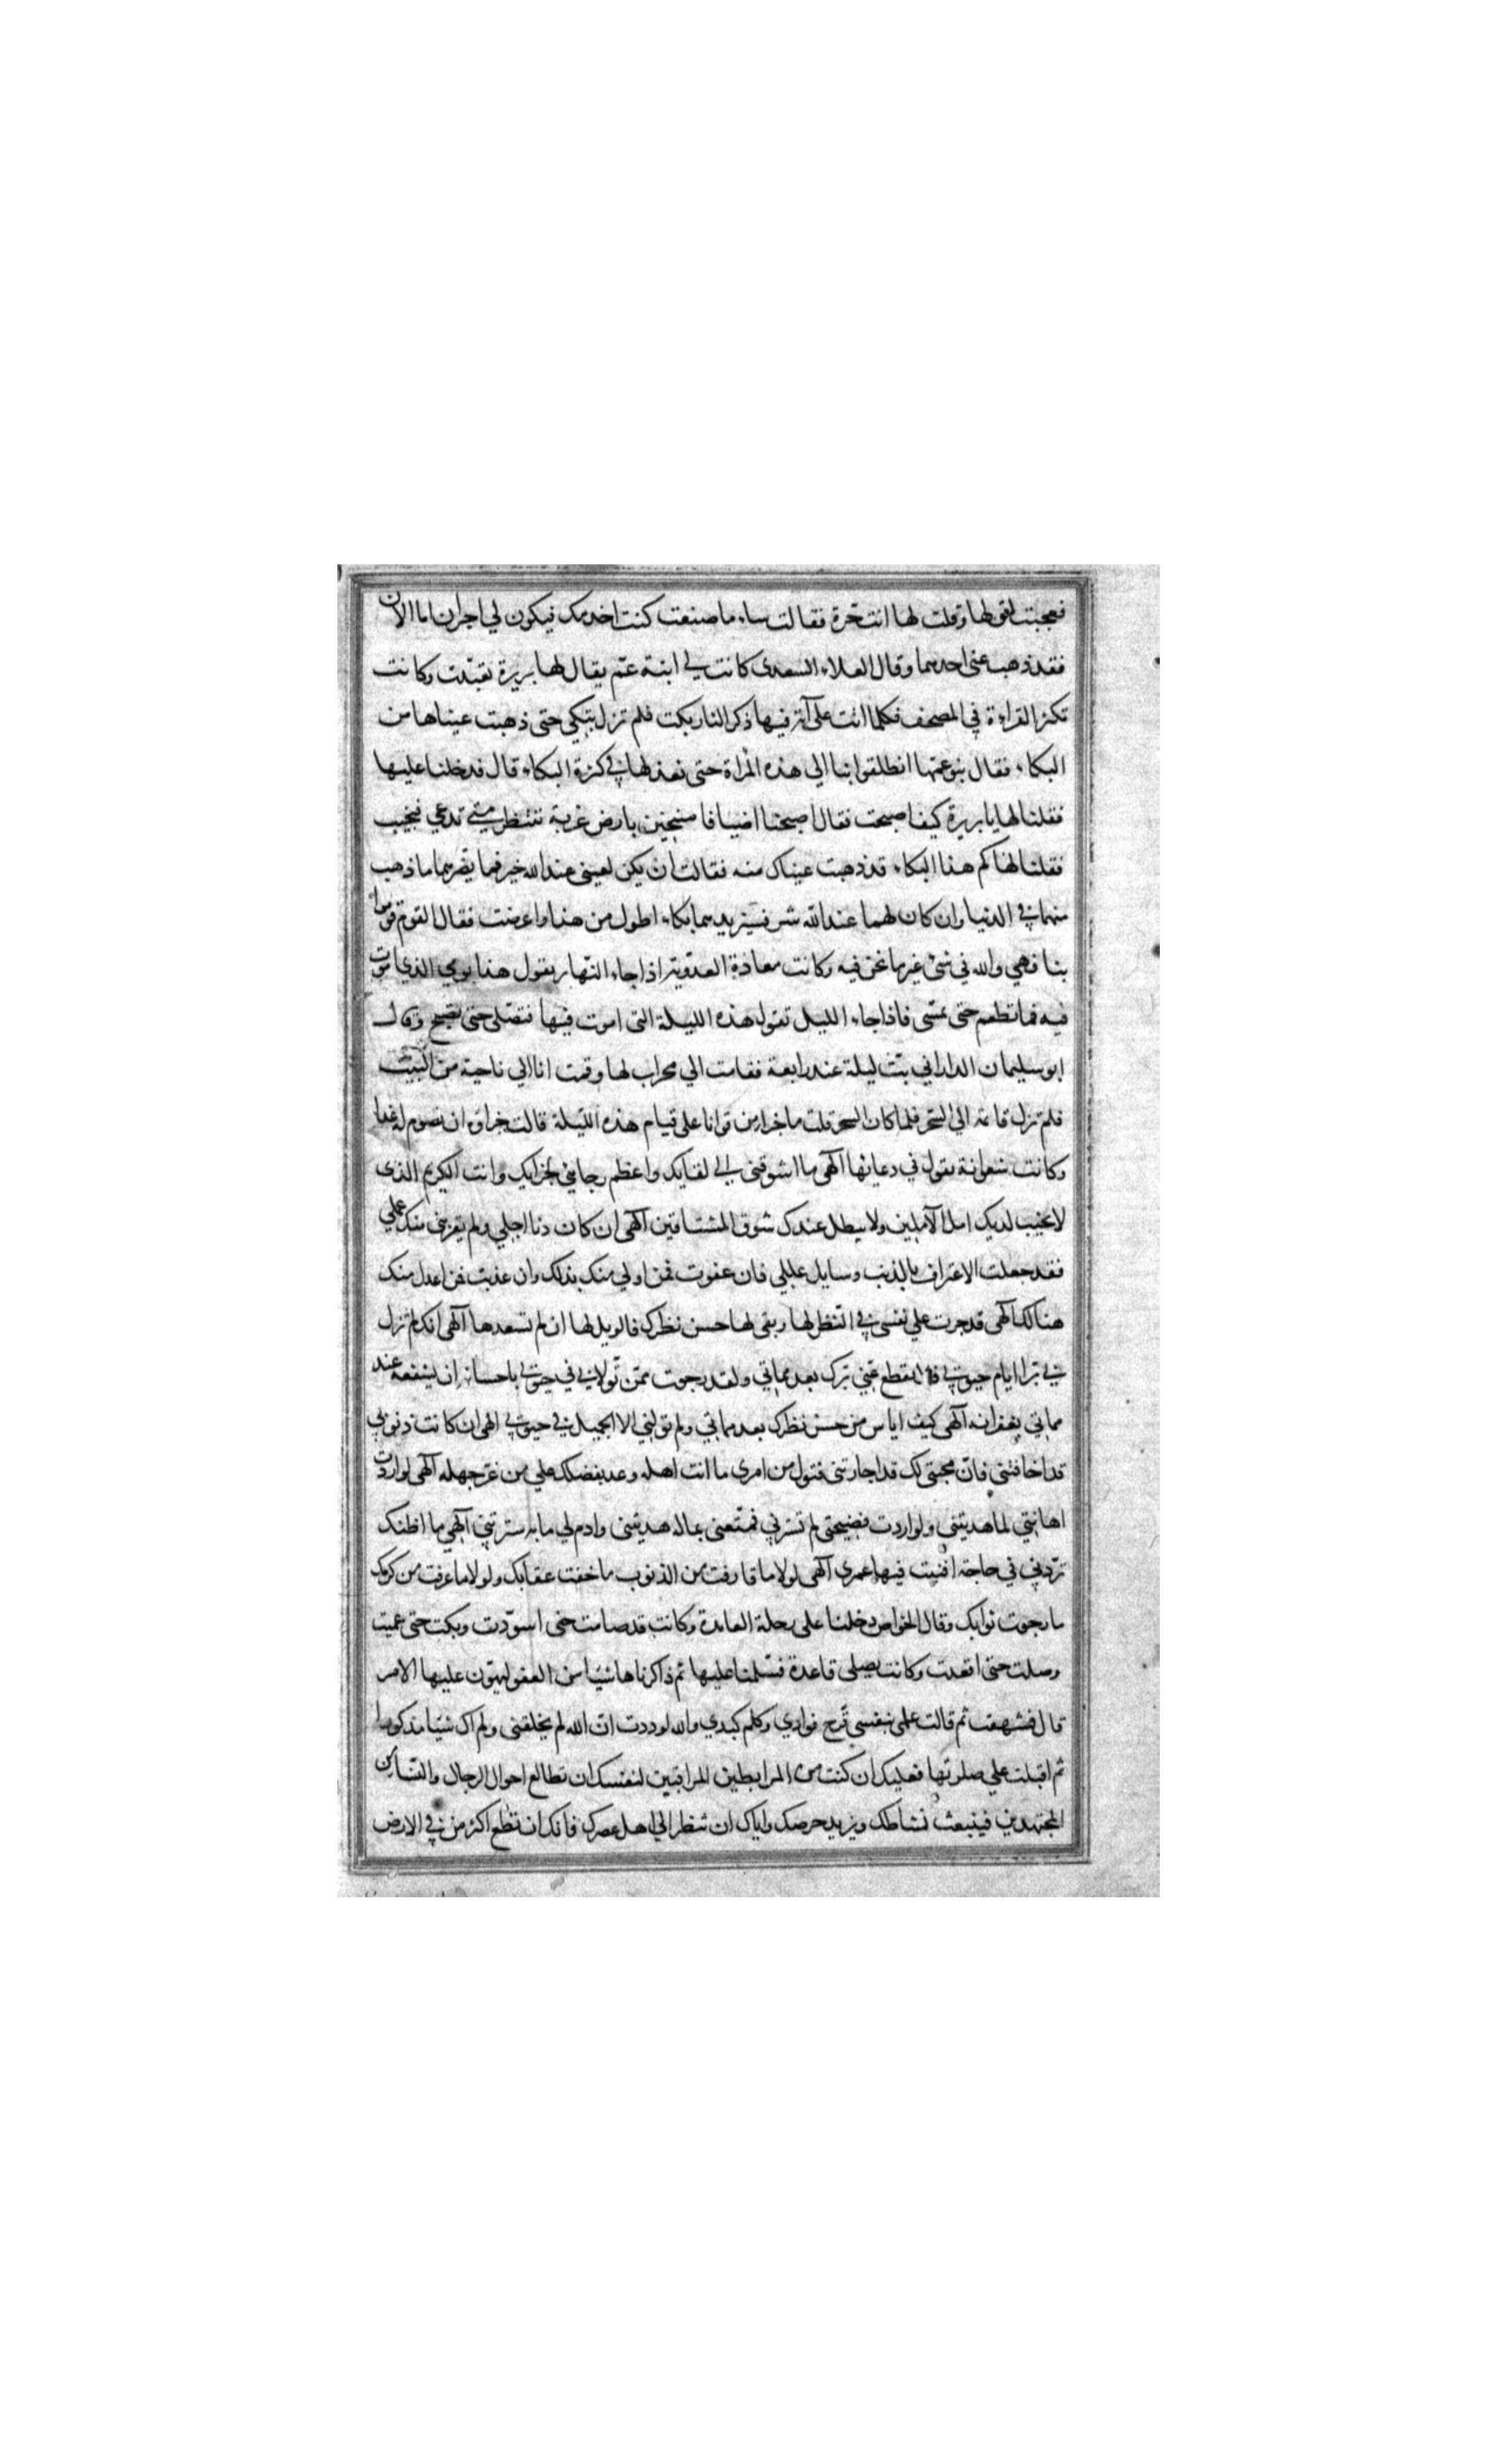 فعجبت لقولها وقلت لها انت حرة فقالت ساء ما صنعت كنت اخدمك فيكون لي اجران اما الان
فقد ذهب عنى احدهما وقال العلاء السعدى كانت لي ابنة عم يقال لها بريرة تعبّدت وكانت
تكثر القراءة في المصحف فكلما اتت على آية فيها ذكر النار بكت فلم تزل تبكي حتى ذهبت عيناها من
البكاء فقال بنو عمّها انطلقوا بنا الي هذه المراة حتى نعذلها في كثرة البكاء قال فدخلنا عليها
فقلنا لها يا بريرة كيف اصبحت فقال اصبحنا اضيافا منيخين بارض غربة ننتظر متي ندعي فنجيب
فقلنا لها كم هذا البكاء قد ذهبت عيناك منه فقالت ان يكن لعينى عند الله خير فما يضرهما ما ذهب
منهما في الدنيا وان كان لهما عند الله شر فسيزيدهما بكاء اطول من هذا واعرضت فقال القوم قوموا
بنا فهي والله في شئ غير ما نحن فيه وكانت معاذة العدوية اذا جاء النهار يقول هذا يومي الذي اموت
فيه فما تطعم حتى تمسى فاذا جاء الليل تقول هذه الليلة التى اموت فيها فتصلى حتى تصبح وقال
ابو سليمان الداراني بتّ ليلة عند رابعة فقامت الي محراب لها وقمت انا الي ناحية من البيت
فلم تزل قائمة الي السّحر فلما كان السحر قلت ما جزاء من قوانا على قيام هذه الليلة قالت جزاؤه ان نصوم له غدا
وكانت شعوانة يقول في دعائها آلهى ما اشوقنى الي لقايك واعظم رجائي لجزايك وانت الكريم الذى
لا يخيب لديك امل الآملين ولا يبطل عندك شوق المشتاقين آلهى ان كان دنا اجلي ولم يقربنى منك عملي
فقد جعلت الاعتراف بالذنب وسايل عللي فان عفوت فمن اولي منك بذلك وان عذبت فمن اعدل منك
هنالك آلهى قد جرت علي نفسى في النظر لها وبقى لها حسن نظرك فالويل لها ان لم تسعدها آلهى انك لم تزل
بي برّا ايام حيوتي فلا تقطع عني برّك بعد مماتي ولقد رجوت ممّن تولاني في حيوتي باحسانه ان يشفعه عند
مماتي بغفرانه آلهى كيف اياس من حسن نظرك بعد مماتي ولم تولني الا الجميل في حيوتي الهى ان كانت ذنوبي
قد اخافتنى فانّ محبتى لك قد اجارتنى فتول من امرى ما انت اهله وعد بفضلك علي من غرّ جهله آلهى لو اردت
اهانتي لما هديتنى ولو اردت فضيحتى لم تسترني فمتّعنى بما له هديتنى وادم لي ما به سترتني آلهي ما اظنك
تردّني في حاجة افنيت فيها عمرى آلهى لولا ما قارفت من الذنوب ما خفت عقابك ولولا ما عرفت من كرمك
ما رجوت ثوابك وقال الخواص دخلنا على رحلة العابدة وكانت قد صامت حتى اسودّت وبكت حتى عميت
وصلت حتى اقعدت وكانت يصلى قاعدة فسلّمنا عليها ثم ذاكرناها شيئا من العفو ليهون عليها الامر
قال فشهقت ثم قالت علمي بنفسي قرّح فوادي وكلم كبدي والله لوددت انّ الله لم يخلقنى ولم اك شيئا مذكورا
ثم اقبلت علي صلوتها فعليك ان كنت من المرابطين المراقبين لنفسك ان تطالع احوال الرجال والنساء من
المجتهدين فينبعث نشاطك ويزيد حرصك واياك ان تنظر الي اهل عصرك فانك ان تطع اكثر من في الارض